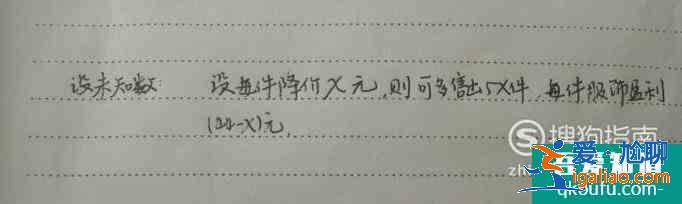 设未知数: 设每件降价X元,则可多售出5X件,每件服饰盈利
(44-X)元,
搜狗指南
zh
爱·尴聊
igaliao.com
qk5ufu.com